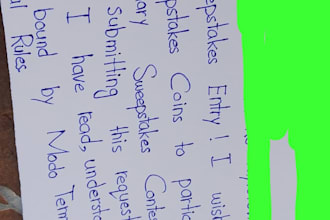 epstakes Entry! I wish
epstakes Coins to partici
ary Sweepstakes Contes
submitting this request
I have read, understa
bound by Modo Term
Rules